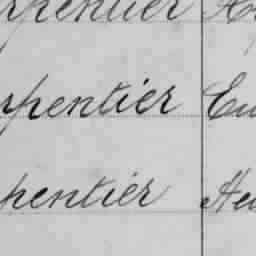 rpentier
rpentier Eu
pentier Hen